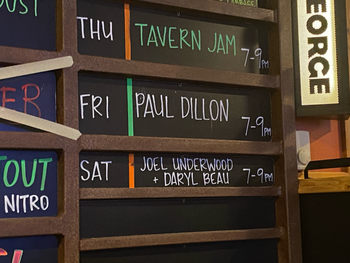 THU
TAVERN JAM
7-9PM
FRI
PAUL DILLON
7-9PM
SAT
JOEL UNDERWOOD
+ DARYL BEAU
7-9PM
TOUT
NITRO
EORGE